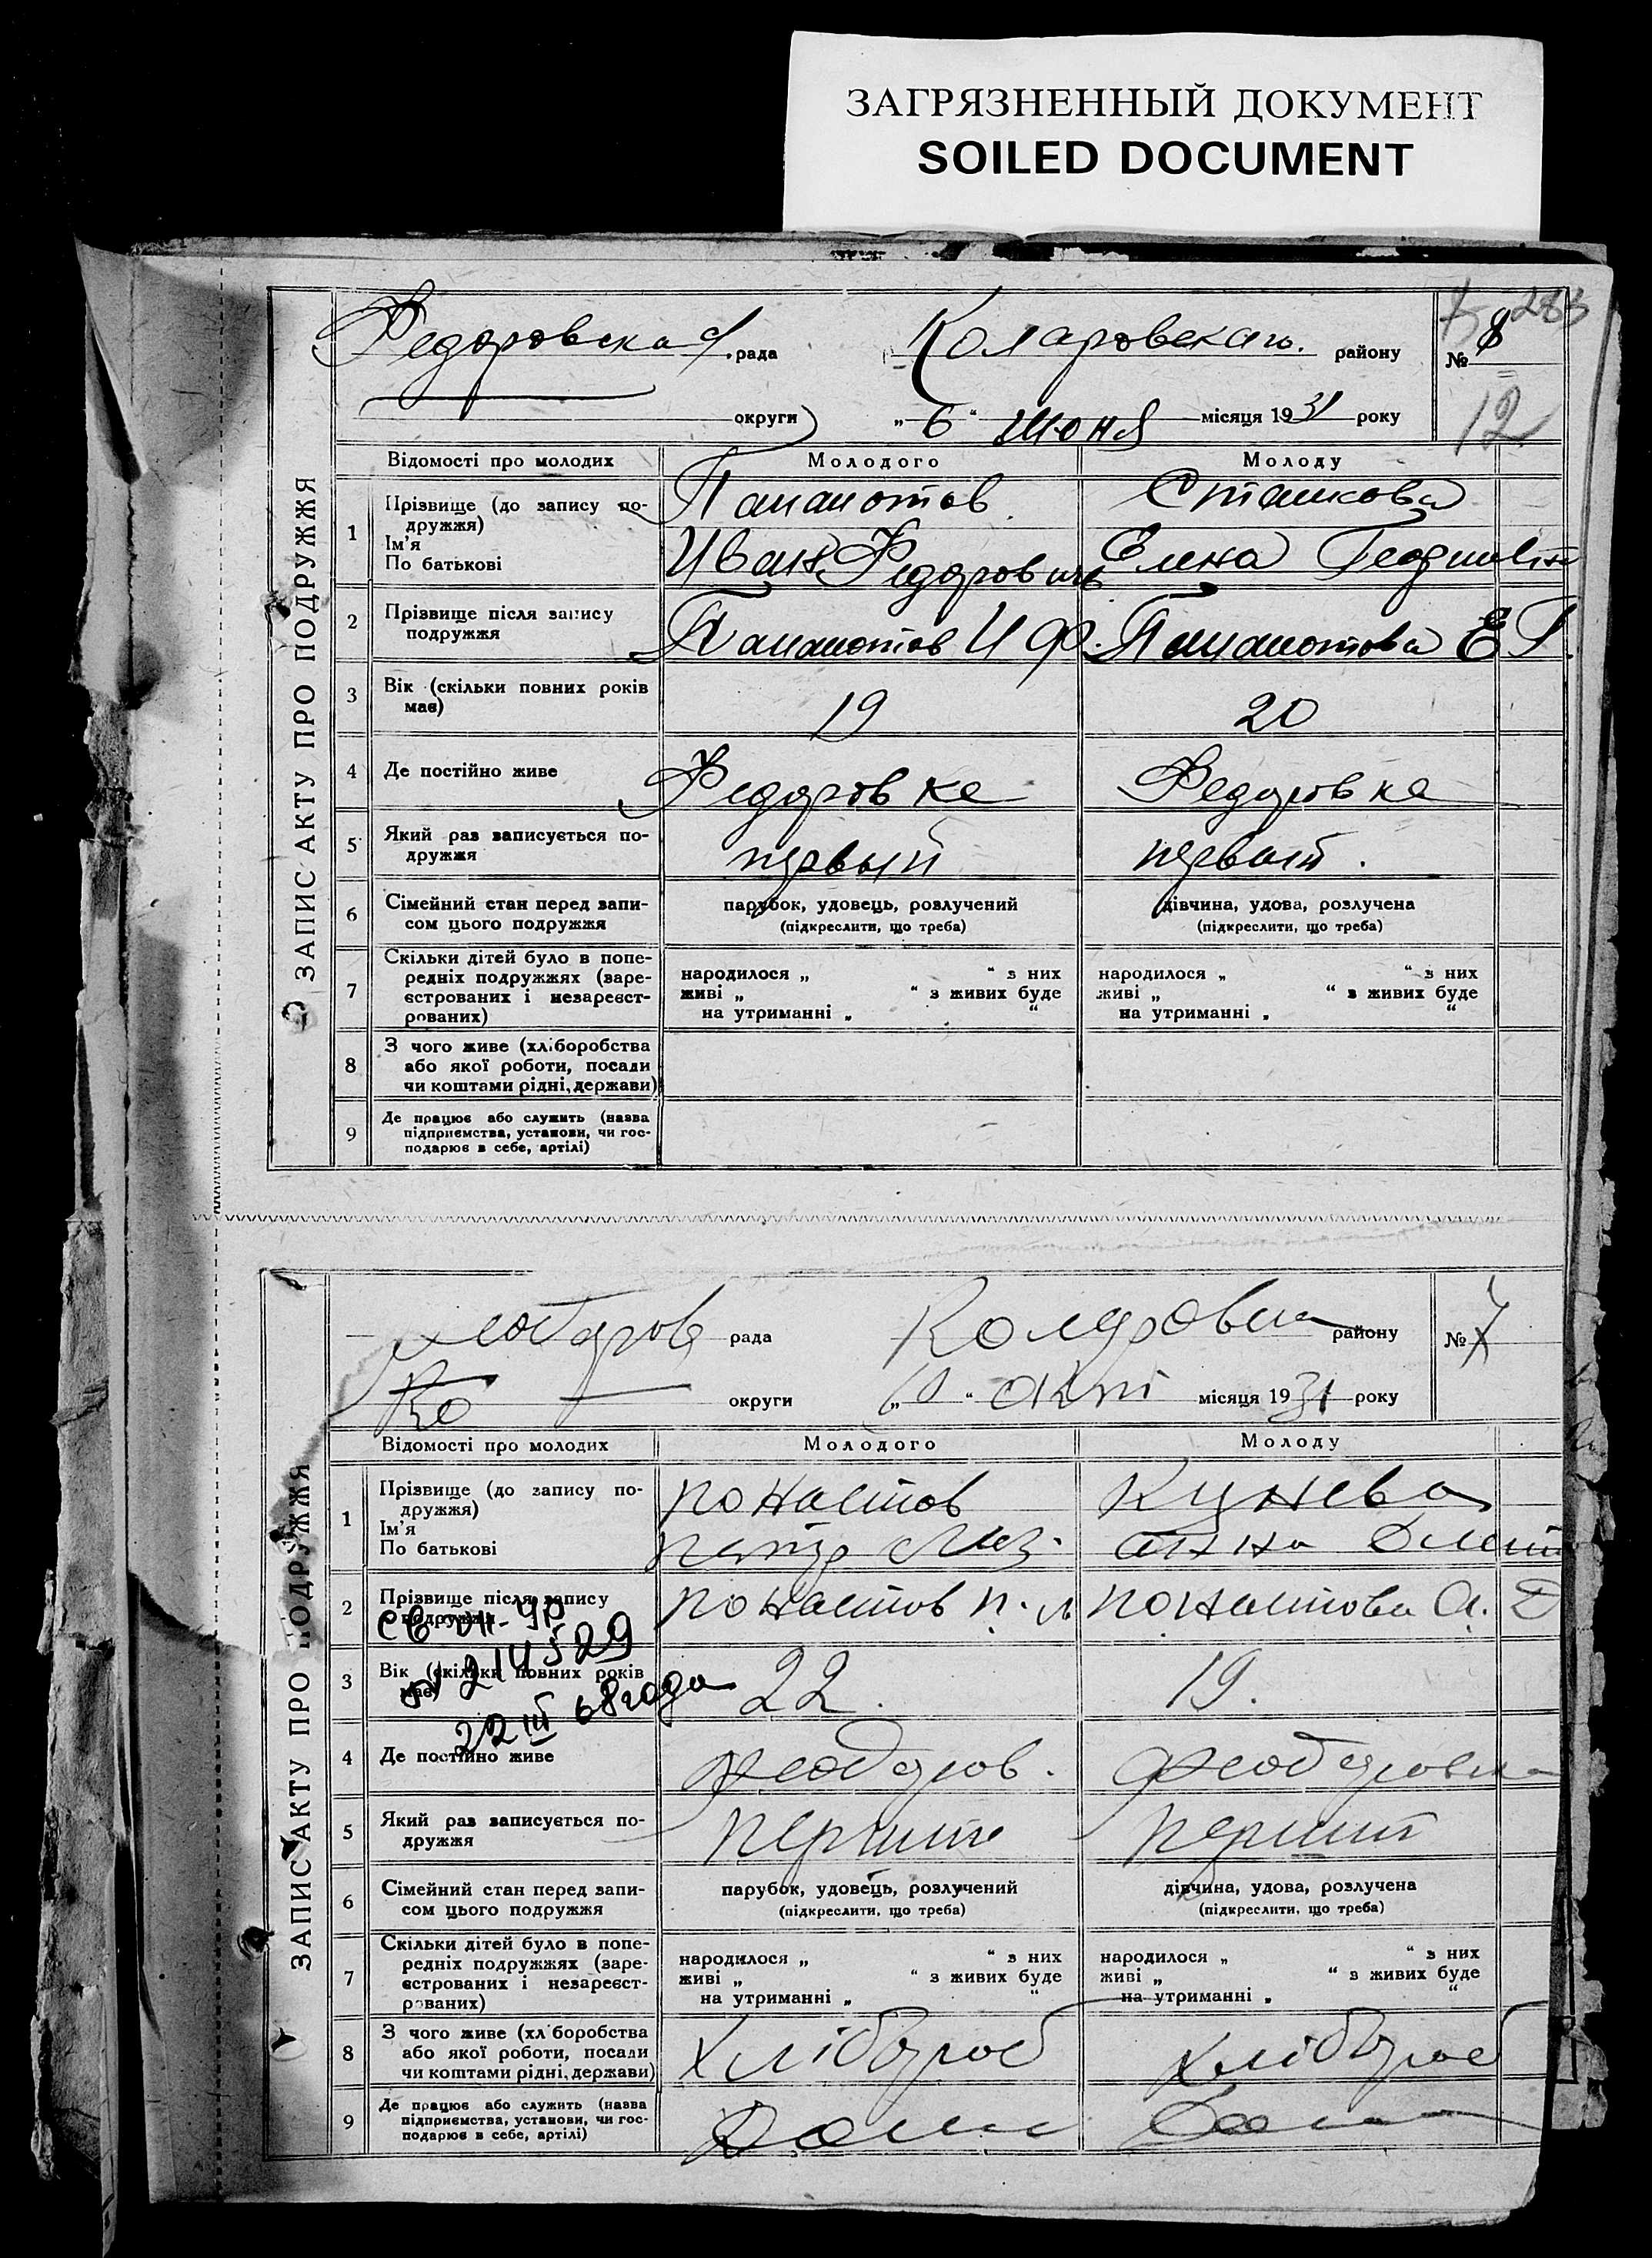 ЗАГРЯЗНЕННЫЙ ДОКУМЕНТ
SOILED DOCUMENT
283
Федоровская рада Коларовскаго району № 8
округи „6“ Июня місяця 1931 року
12
ЗАПИС АКТУ ПРО ПОДРУЖЖЯ
Відомості про молодих Молодого Молоду
1 Прізвище (до запису подружжя) Панаиотов Станкова
Ім'я
По батькові Иван Федорович Елена Георгиевн
2 Прізвище після запису подружжя Панаиотов И Ф. Панаиотова Е Г.
3 Вік (скільки повних років має) 19 20
4 Де постійно живе Федоровке Федоровке
5 Який раз записується подружжя первый первый.
6 Сімейний стан перед записом цього подружжя парубок, удовець, розлучений дівчина, удова, розлучена
(підкреслити, що треба) (підкреслити, що треба)
7 Скільки дітей було в попередніх подружжях (зареєстрованих і незареєстрованих) народилося „ “ з них народилося „ “ з них
живі „ “ з живих буде живі „ “ з живих буде
на утриманні „ “ на утриманні „ “
8 З чого живе (хліборобства або якої роботи, посади чи коштами рідні, держави)
9 Де працює або служить (назва підприємства, установи, чи господарює в себе, артілі)
рада району № 7
округи місяця 1931 року
ЗАПИС АКТУ ПРО ПОДРУЖЖЯ
Відомості про молодих Молодого Молоду
1 Прізвище (до запису подружжя) Понаетов Кунева
Ім'я
По батькові Петр Лаз. Анна Дмит
2 Прізвище після запису подружжя Понаетов П. Л Понаетова А. Д
№ 214529
22 III 68 года
3 Вік (скільки повних років має) 22. 19.
4 Де постійно живе Феодоров. Феодоровка
5 Який раз записується подружжя
6 Сімейний стан перед записом цього подружжя парубок, удовець, розлучений дівчина, удова, розлучена
(підкреслити, що треба) (підкреслити, що треба)
7 Скільки дітей було в попередніх подружжях (зареєстрованих і незареєстрованих) народилося „ “ з них народилося „ “ з них
живі „ “ з живих буде живі „ “ з живих буде
на утриманні „ “ на утриманні „ “
8 З чого живе (хліборобства або якої роботи, посади чи коштами рідні, держави) Хлібороб Хлібороб
9 Де працює або служить (назва підприємства, установи, чи господарює в себе, артілі)